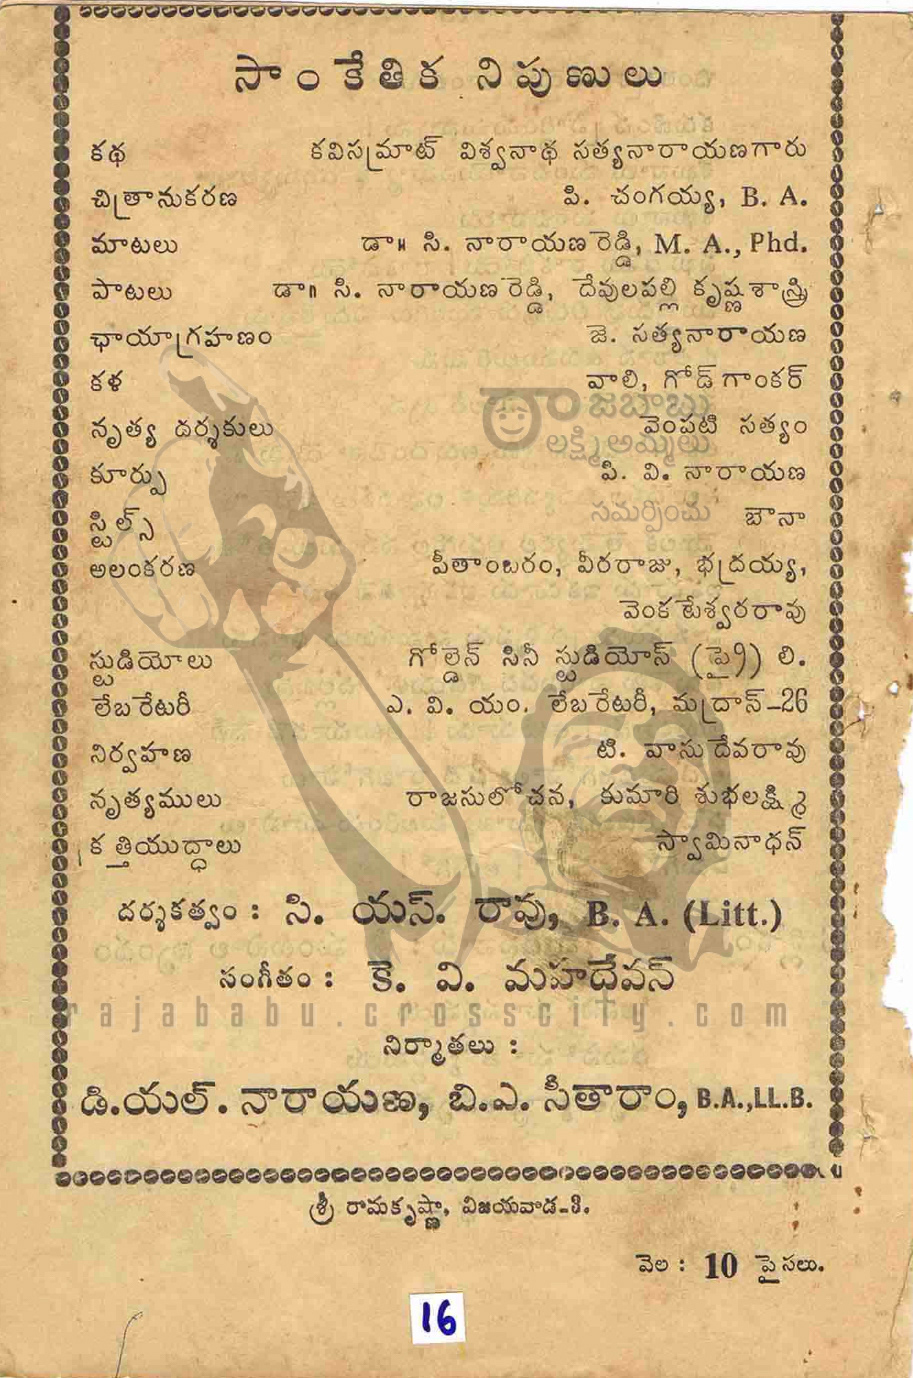 సాంకేతిక నిపుణులు
కథ కవిసమ్రాట్ విశ్వనాథ సత్యనారాయణగారు
చిత్రానుకరణ పి. చంగయ్య, B. A.
మాటలు డా॥ సి. నారాయణ రెడ్డి, M. A., Phd.
పాటలు డా॥ సి. నారాయణ రెడ్డి, దేవులపల్లి కృష్ణశాస్త్రి
ఛాయాగ్రహణం జె. సత్యనారాయణ
కళ వాలి, గోడ్ గాంకర్
రాజబాబు
నృత్య దర్శకులు వెంపటి సత్యం
లక్ష్మిఅమ్మలు
కూర్పు పి. వి. నారాయణ
సమర్పించు
స్టిల్స్ బౌనా
అలంకరణ పీతాంబరం, వీరరాజు, భద్రయ్య,
వెంకటేశ్వరరావు
స్టుడియోలు గోల్డెన్ సినీ స్టుడియోస్ (పై) లి.
లేబరేటరీ ఎ. వి. యం. లేబరేటరీ, మద్రాస్-26
నిర్వహణ టి. వాసుదేవరావు
నృత్యములు రాజసులోచన, కుమారి శుభలక్ష్మి
కత్తియుద్ధాలు స్వామినాధన్
దర్శకత్వం : సి. యస్. రావు, B. A. (Litt.)
సంగీతం : కె. వి. మహదేవన్
rajababu.crosscity.com
నిర్మాతలు :
డి.యల్. నారాయణ, బి.ఎ. సీతారాం, B.A.,LL.B.
శ్రీ రామకృష్ణా, విజయవాడ-3.
వెల : 10 పైసలు.
16